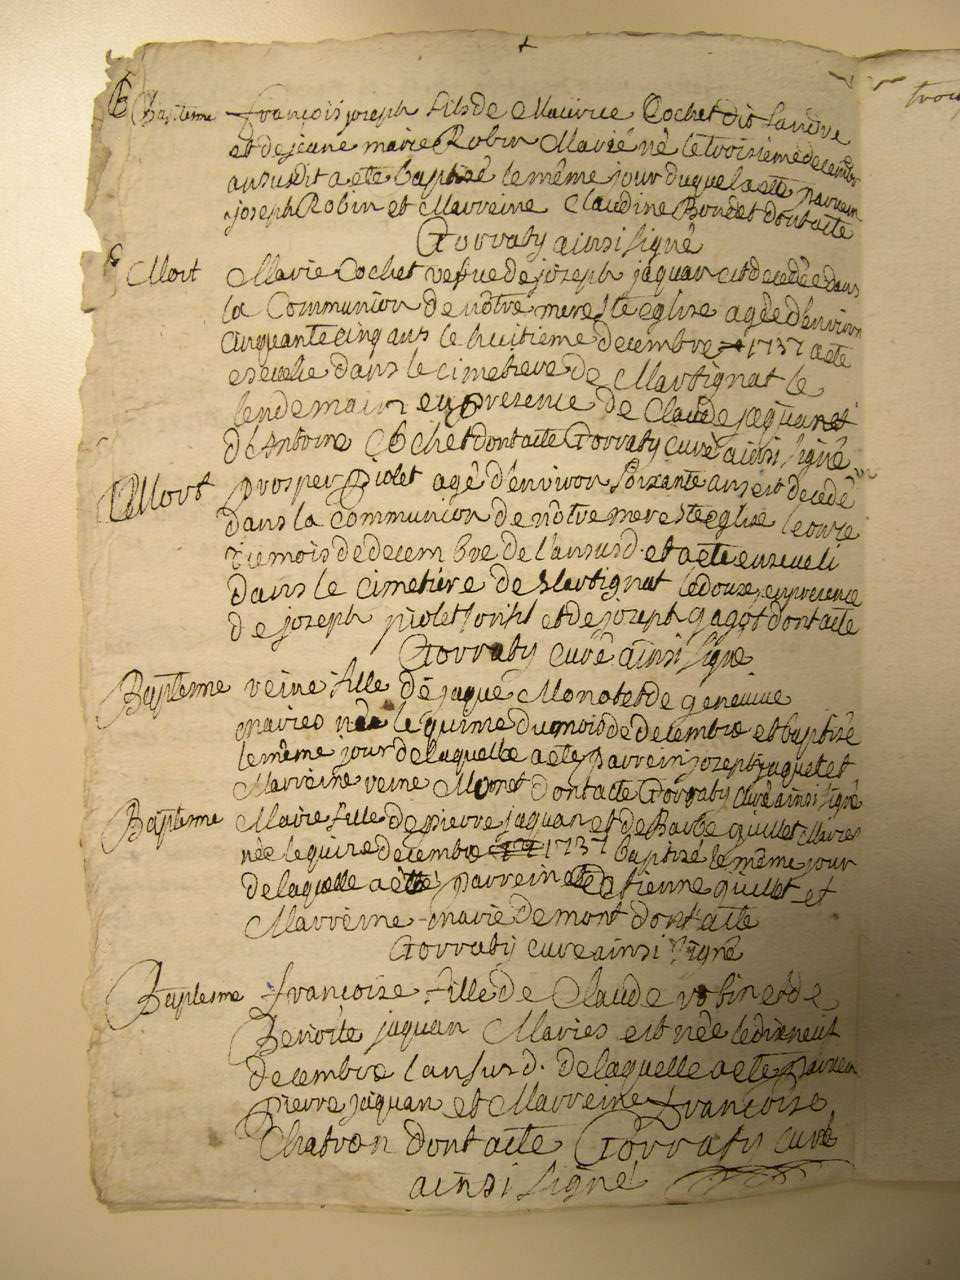 Baptesme françois joseph fils de Maurice Cochet dit Landre
et de jeane marie Robin Marié né le troisieme decembre
an susdit a eté baptisé le même jour duquel a eté parrein
joseph Robin et Marreine Claudine Bondet dont acte
Gorraty ainsi signé
Mort Marie Cochet vefve de jozeph jaquan est decedée dans
la Communion de nôtre mere Ste eglise agée d'environ
cinquante cinq ans le huitieme decembre 1737 a eté
ensevelie dans le cimetiere de Martignat le
lendemain en presence de Claude jaquan et
d'Antoine Cochet dont acte Gorraty curé ainsi signé
Mort prosper piolet agé d'environ soixante ans est decedé
dans la communion de nôtre mere Ste eglise le onze
du mois de decembre de l'an susd. et a eté enseveli
dans le cimetiére de Martignat le douze en presence
de jozeph piolet son fil et de jozeph gagot dont acte
Gorraty curé ainsi signé
Baptesme reine fille de jaque Monet et de genevieve
mariés née le quinze du mois de decembre et baptisé
le même jour de laquelle a eté parrein jozeph jaquet et
Marréine reine Monet dont acte Gorraty curé ainsi signé
Baptesme Marie fille de pierre jaquan et de Barbe quillet Mariés
née le quinze decembre 1737 baptizé le même jour
de laquelle a eté parrein etienne quillet et
Marréine marie Demont dont acte
Gorraty curé ainsi signé
Baptesme françoize fille de Claude robin et de
Benoite jaquan Mariés est née le dixneuf
decembre l'an susd. de laquelle a eté parrein
pierre jaquan et Marreine françoize
Chatron dont acte Gorraty curé
ainsi signé